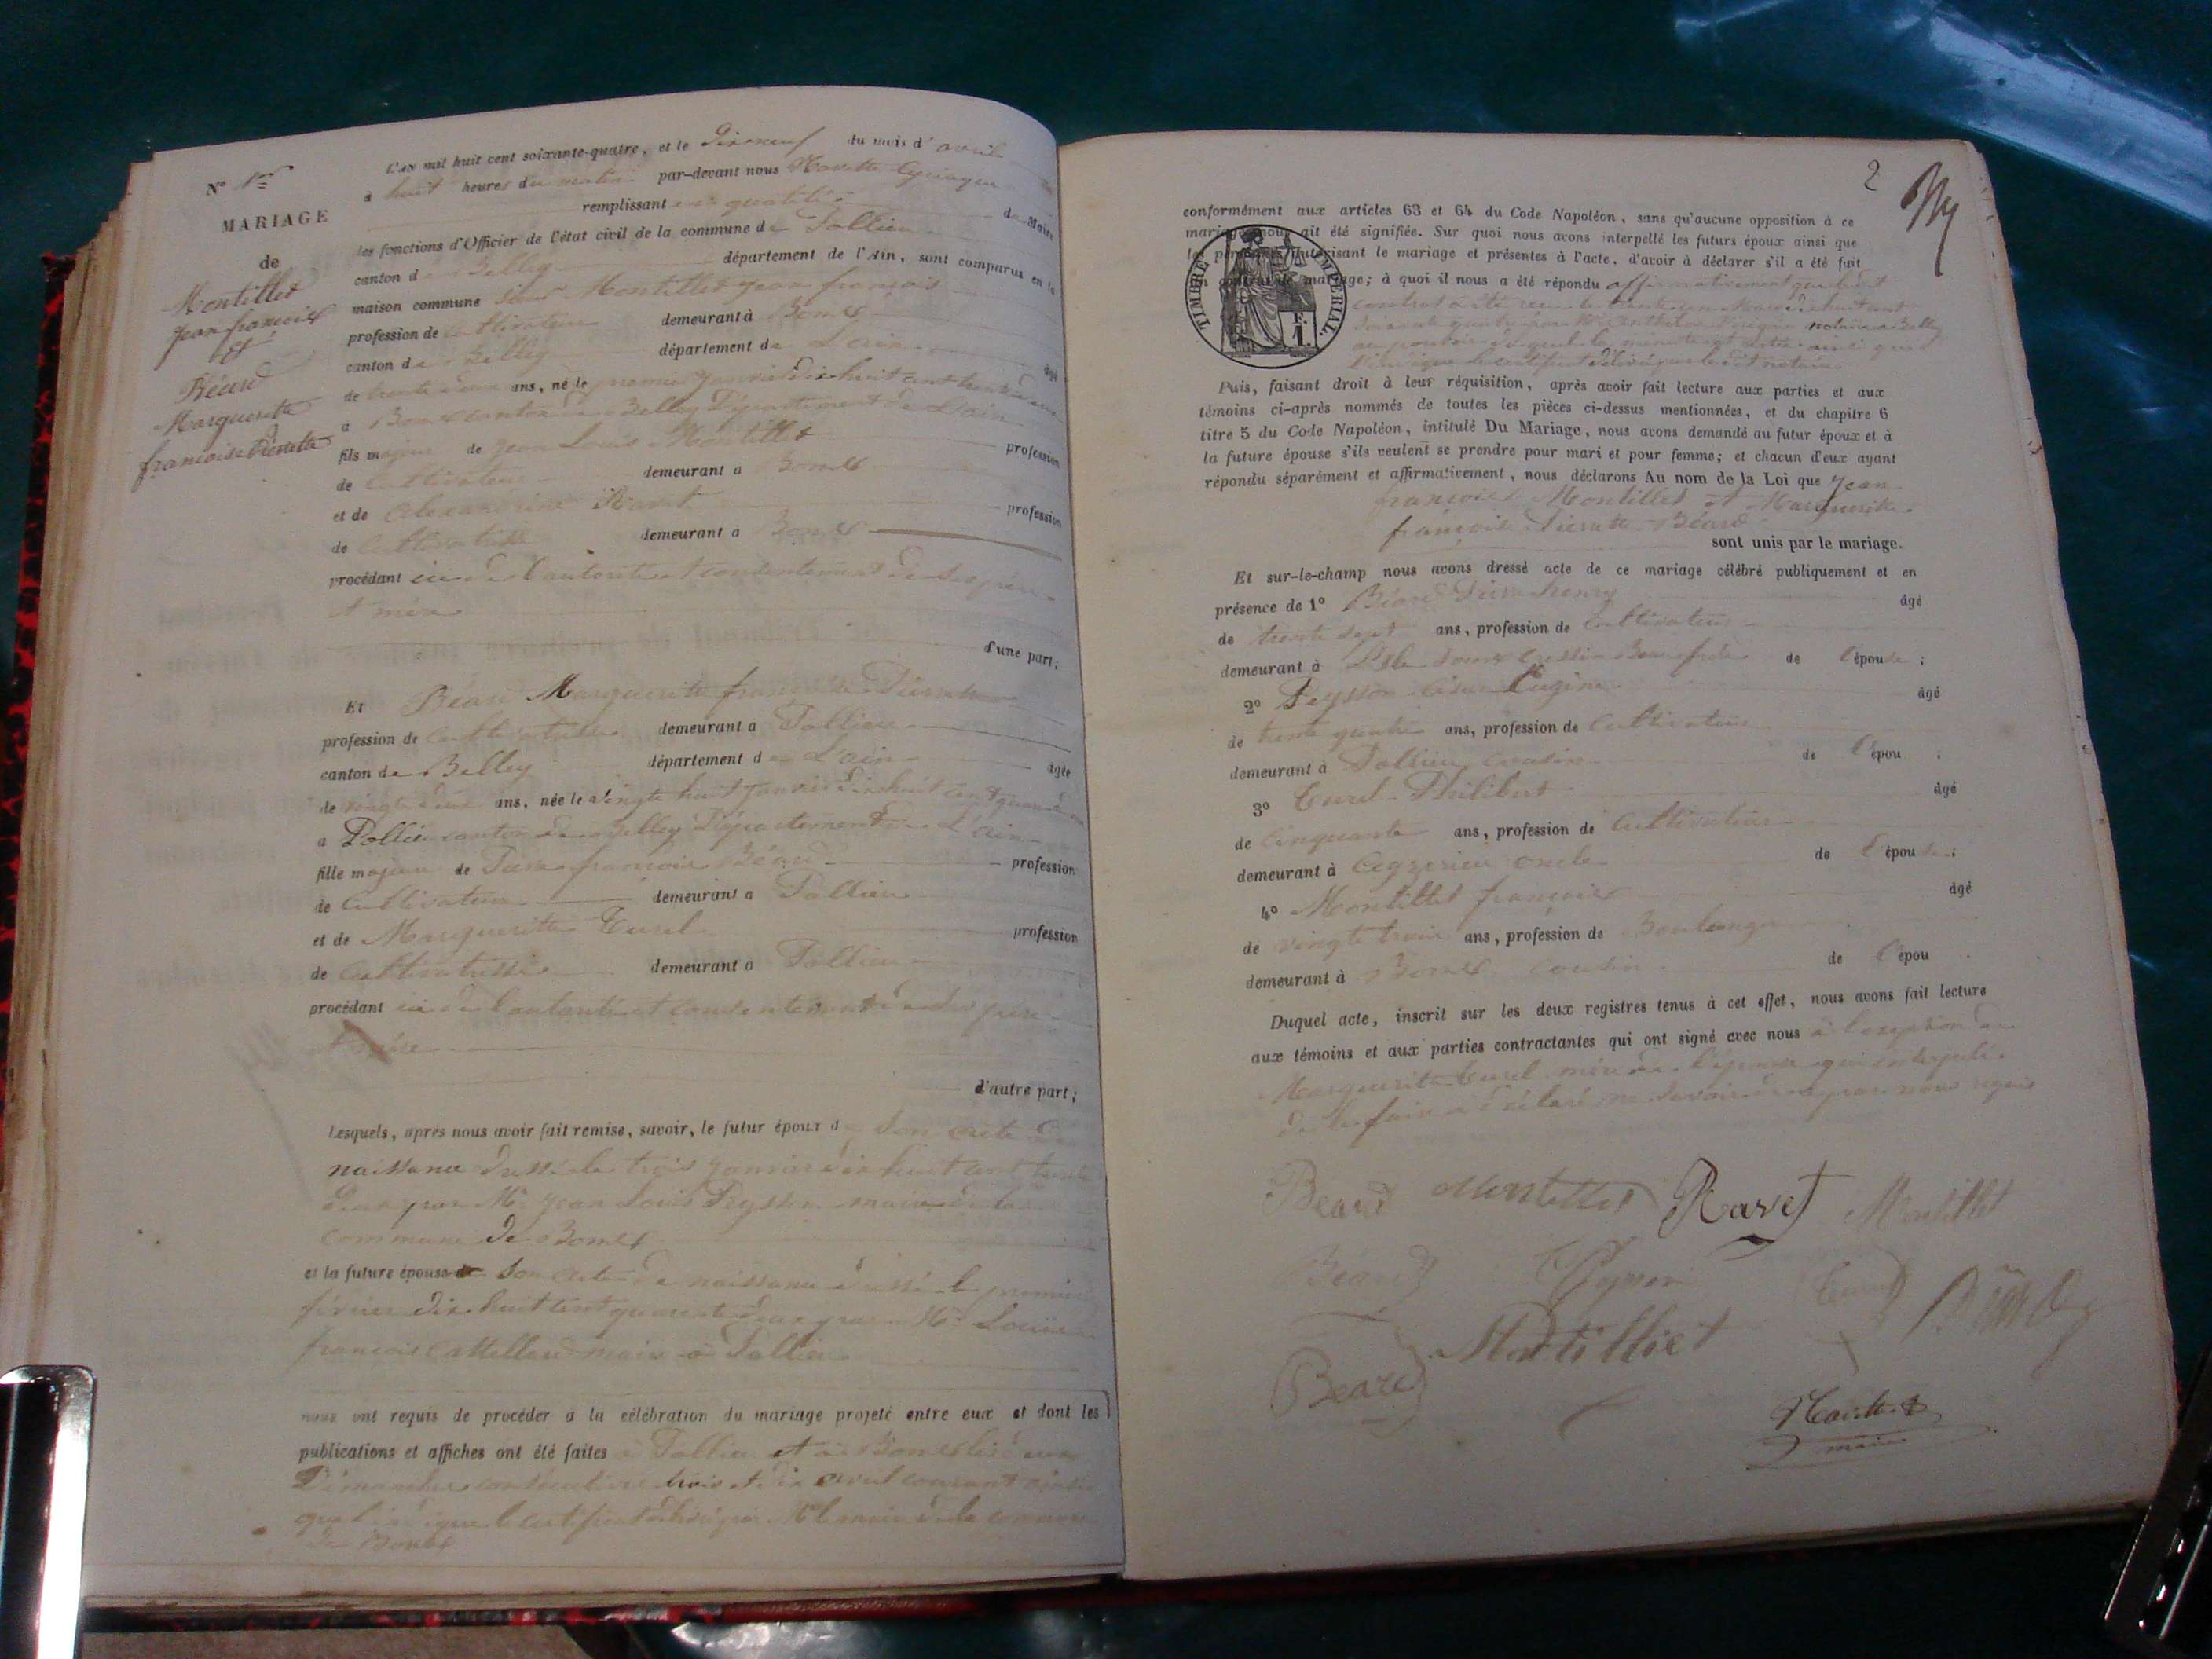 N° 1er
MARIAGE
de
Montillet
jean françois
et
Béard
Marguerite
françoise Pierrette
L'an mil huit cent soixante-quatre, et le Dix neuf du mois d'avril
à huit heures du matin par-devant nous
remplissant en qualité de Maire
les fonctions d'Officier de l'état civil de la commune de Pollieu
canton de Belley département de l'Ain, sont comparus en la
maison commune sieur Montillet jean françois
profession de cultivateur demeurant à Bons
canton de Belley département de L'ain âgé
de trente deux ans, né le premier janvier dix huit cent trente deux
à Bons canton de Belley Département de L'ain
fils majeur de jean Louis Montillet profession
de Cultivateur demeurant à Bons
et de Alexandrine Ravet profession
de Cultivatrice demeurant à Bons
procédant ici de l'autorité et consentement de ses père
et mère
d'une part;
Et Béard Marguerite françoise Pierrette
profession de cultivatrice demeurant à Pollieu
canton de Belley département de L'ain âgée
de vingt deux ans, née le vingt huit janvier dix huit cent quarante
à Pollieu canton de Belley Département de L'ain
fille majeure de Pierre françois Béard profession
de Cultivateur demeurant à Pollieu
et de Marguerite Curel profession
de Cultivatrice demeurant à Pollieu
procédant ici de l'autorité et consentement de ses père
et mère
d'autre part;
Lesquels, après nous avoir fait remise, savoir, le futur époux de Son acte de
naissance dressé le trois janvier dix huit cent trente
deux par Mr jean Louis Peysson maire de la
commune de Bons
et la future épouse de Son acte de naissance dressé le premier
février dix huit cent quarante deux par Mr Louis
françois maire à Pollieu
nous ont requis de procéder à la célébration du mariage projeté entre eux et dont les
publications et affiches ont été faites à Pollieu et à Bons les deux
Dimanches consécutifs trois et dix avril courant ainsi
que l'indique le certificat délivré par Mr le maire de la commune
de Bons
2
conformément aux articles 63 et 64 du Code Napoléon, sans qu'aucune opposition à ce
mariage nous ait été signifiée. Sur quoi nous avons interpellé les futurs époux ainsi que
les personnes autorisant le mariage et présentes à l'acte, d'avoir à déclarer s'il a été fait
un contrat de mariage; à quoi il nous a été répondu affirmativement que ledit
TIMBRE IMPÉRIAL
contrat a été dix huit cent
soixante quatre par notaire à Belley
au pouvoir duquel la minute est restée ainsi que
l'indique le certificat délivré par le dit notaire
Puis, faisant droit à leur réquisition, après avoir fait lecture aux parties et aux
témoins ci-après nommés de toutes les pièces ci-dessus mentionnées, et du chapitre 6
titre 5 du Code Napoléon, intitulé Du Mariage, nous avons demandé au futur époux et à
la future épouse s'ils veulent se prendre pour mari et pour femme; et chacun d'eux ayant
répondu séparément et affirmativement, nous déclarons Au nom de la Loi que jean
françois Montillet et Marguerite
françoise Pierrette Béard
sont unis par le mariage.
Et sur-le-champ nous avons dressé acte de ce mariage célébré publiquement et en
présence de 1° Béard Pierre henry âgé
de trente sept ans, profession de Cultivateur
demeurant à de l'épouse;
2° Peysson Eugène âgé
de trente quatre ans, profession de Cultivateur
demeurant à Pollieu cousin de l'épou ;
3° Curel Philibert âgé
de Cinquante ans, profession de Cultivateur
demeurant à Ceyzerieu oncle de l'épouse;
4° Montillet françois âgé
de vingt trois ans, profession de Boulanger
demeurant à Bons cousin de l'épou .
Duquel acte, inscrit sur les deux registres tenus à cet effet, nous avons fait lecture
aux témoins et aux parties contractantes qui ont signé avec nous à l'exception de
Marguerite Curel mère de l'épouse qui interpelée
de le faire a déclaré ne savoir de ce par nous requis
Beard Montillet Ravet Montillet
Béard Peysson Curel
Beard Montilliet
maire